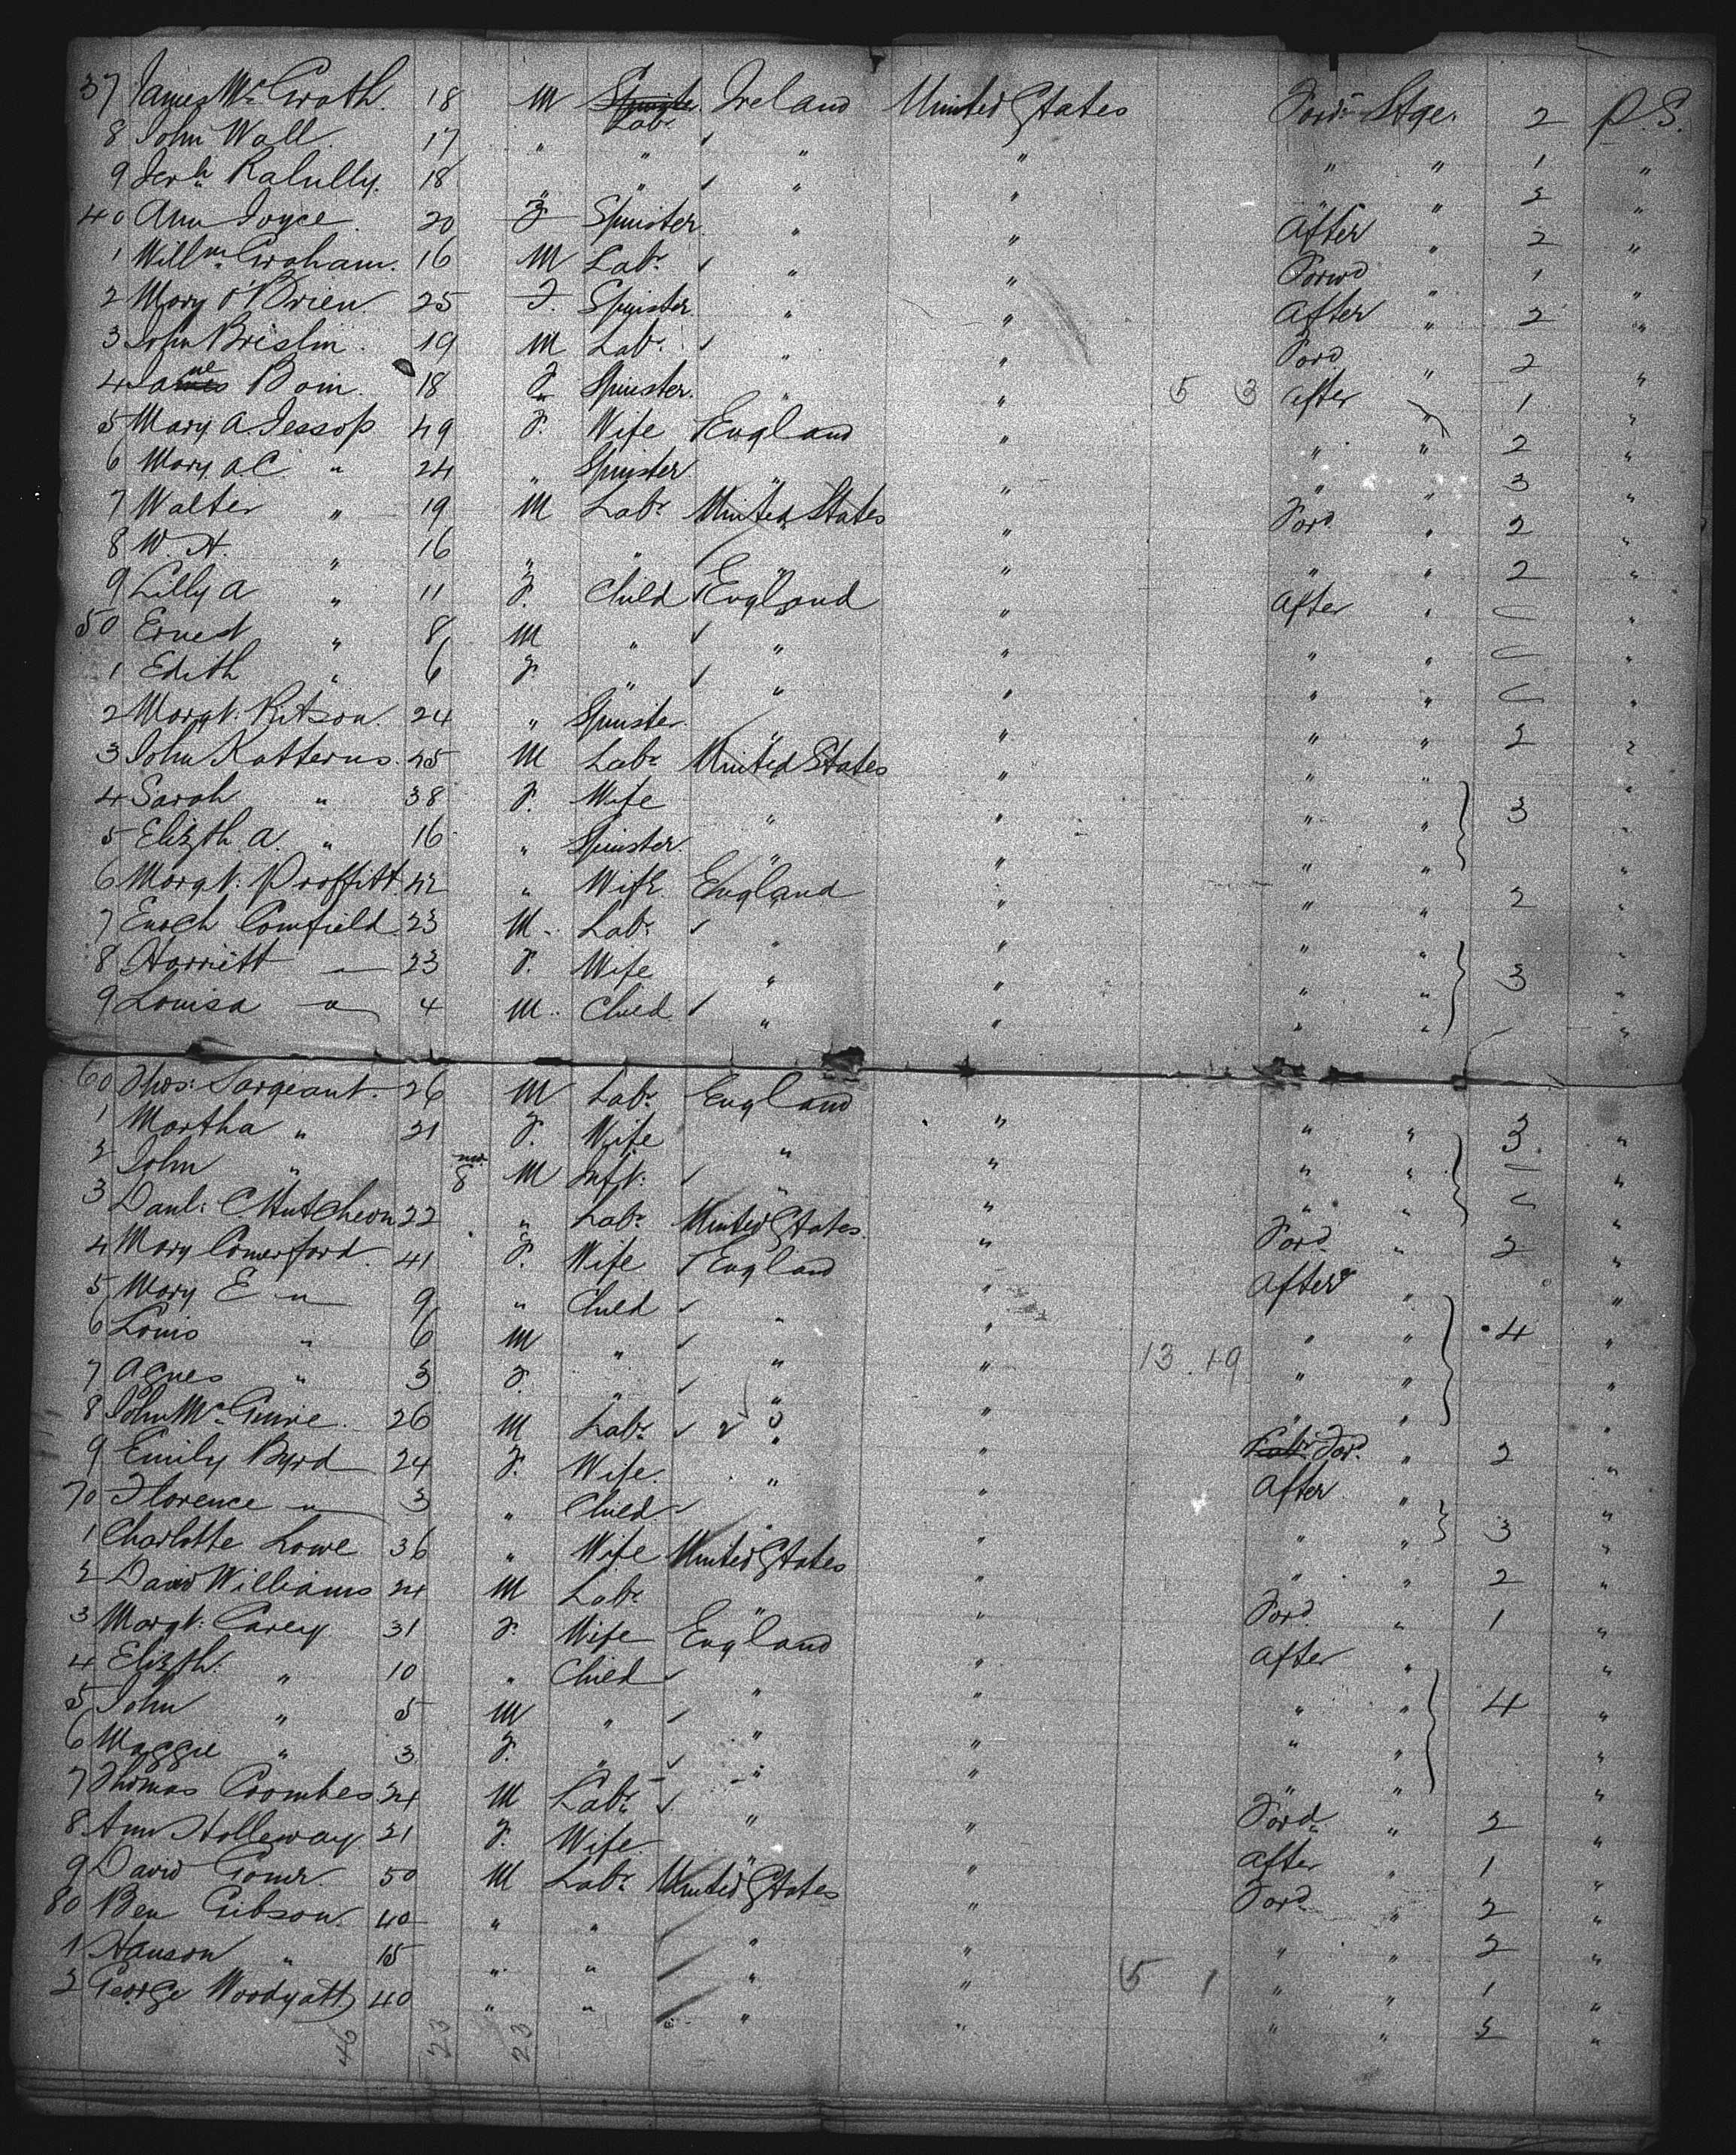 37 James McGrath. 18 M Spinster Labr. Ireland United States Forwd Stge. 2 P.S.
8 John Wall. 17 " " " " " " 1 "
9 Jerh 18 " " " " " " 2 "
40 Ann Joyce. 20 F Spinster " " After " 2 "
1 Willm Graham. 16 M Labr " " Forwd " 1 "
2 Mary O'Brien 25 F. Spinster " " After " 2 "
3 John Brislin. 19 M Labr. " " Ford " 2 "
4 Jane 18 F Spinster. " " 5 3 After " 1 "
5 Mary A. Jessop 49 F. Wife England " " " 2 "
6 Mary A C. " 24 " Spinster " " " " 3 "
7 Walter " 19 M Labr United States " Ford " 2 "
8 W. H. " 16 " " " " " " 2 "
9 Lilly A " 11 F. Child England " After " "
50 Ernest " 8 M " " " " " "
1 Edith " 6 F. " " " " " "
2 Margt. Ritson. 24 " Spinster. " " " " 2 "
3 John Katterns. 45 M Labr United States " " " "
4 Sarah " 38 F. Wife " " " " 3 "
5 Elizth A. " 16 " Spinster. " " " " "
6 Margt. Proffitt 42 " Wife England " " " 2 "
7 Enoch Cornfield 23 M. Labr " " " " "
8 Harriett " 23 F. Wife " " " " 3 "
9 Louisa " 4 M. Child " " " " "
60 Thos: Sargeant. 26 M Labr. England " " " 3. "
1 Martha " 21 F. Wife " " " " "
2 John " 8 M Inft. " " " " "
3 Danl: C. Hutcheon 22 " Labr United States. " Ford " 2 "
4 Mary Comerford. 41 F. Wife England " After " "
5 Mary E " 9 " Child " " " " 4 "
6 Louis " 6 M " " " " " "
7 Agnes " 3 F. " " " 13 . 19 " " "
8 John McGuire. 26 M Labr. " " Ford. " 2 "
9 Emily Byrd 24 F. Wife. " " After " "
70 Florence " 3 " Child " " " " 3 "
1 Charlotte Lowe 36 " Wife United States " " " 2 "
2 David Williams 24 M Labr " " Ford. " 1 "
3 Margt: Carey 31 F. Wife England " After " "
4 Elizth: " 10 " Child " " " " 4 "
5 John " 5 M " " " " " "
6 Maggie " 3 F. " " " " " "
7 Thomas Coombes. 24 M Labr. " " Ford. " 2 "
8 Ann Holleway. 21 F. Wife. " " After " 1 "
9 David 50 M Labr. United States " Ford " 2 "
80 Ben Gibson. 40 " " " " " " 2 "
1 Hanson " 15 " " " " 5 1 " " 1 "
2 George Woodyatt 40 " " " " " " 2 "
46 23 23